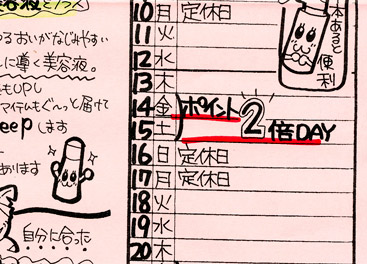 美容液とプラス
るおいがなじみやすい
に導く美容液。
もUPし
アイテムもぐ〜っと届けて
eepします
あります
自分に合った
10 月 定休日
11 火
12 水
13 木
14 金 ポイント
2倍DAY
15 土
16 日 定休日
17 月 定休日
18 火
19 水
20 木
本あると
便利